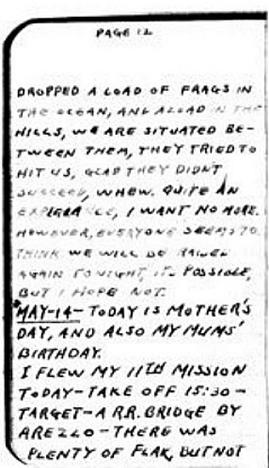 PAGE 12
DROPPED A LOAD OF FRAGS IN
THE OCEAN, AND A LOAD IN THE
HILLS, WE ARE SITUATED BE-
TWEEN THEM, THEY TRIED TO
HIT US, GLAD THEY DIDN'T
SUCCEED, WHEW. QUITE AN
EXPERIANCE, I WANT NO MORE.
HOWEVER, EVERYONE SEEMS TO
THINK WE WILL BE RAIDED
AGAIN TONIGHT, IT'S POSSIBLE,
BUT I HOPE NOT.
MAY-14- TODAY IS MOTHER'S
DAY, AND ALSO MY MUMS'
BIRTHDAY.
I FLEW MY 11TH MISSION
TODAY-TAKE OFF 15:30-
TARGET-A RR. BRIDGE BY
AREZZO-THERE WAS
PLENTY OF FLAK, BUT NOT